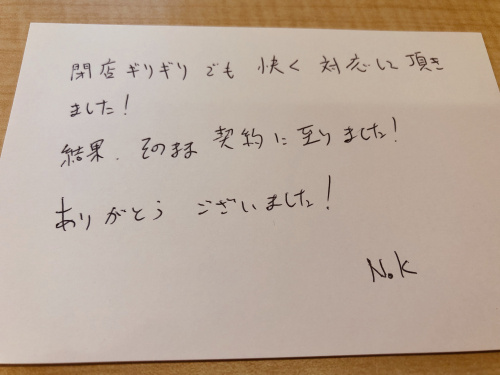 閉店ギリギリでも 快く 対応して頂き
ました!
結果、そのまま 契約に至りました!
ありがとう ございました!
N.K